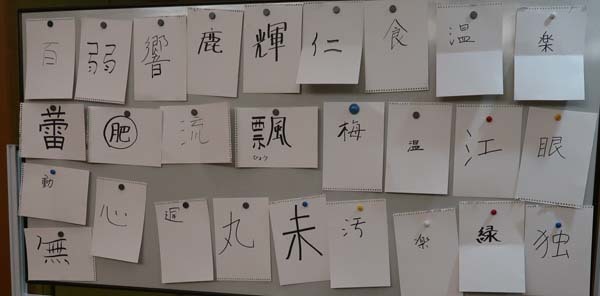 百 弱 響 鹿 輝 仁 食 温 楽
蕾 肥 流 飄 梅 温 江 眼
ひょう
動 心 迴 丸 未 汚 楽 緑 独
無